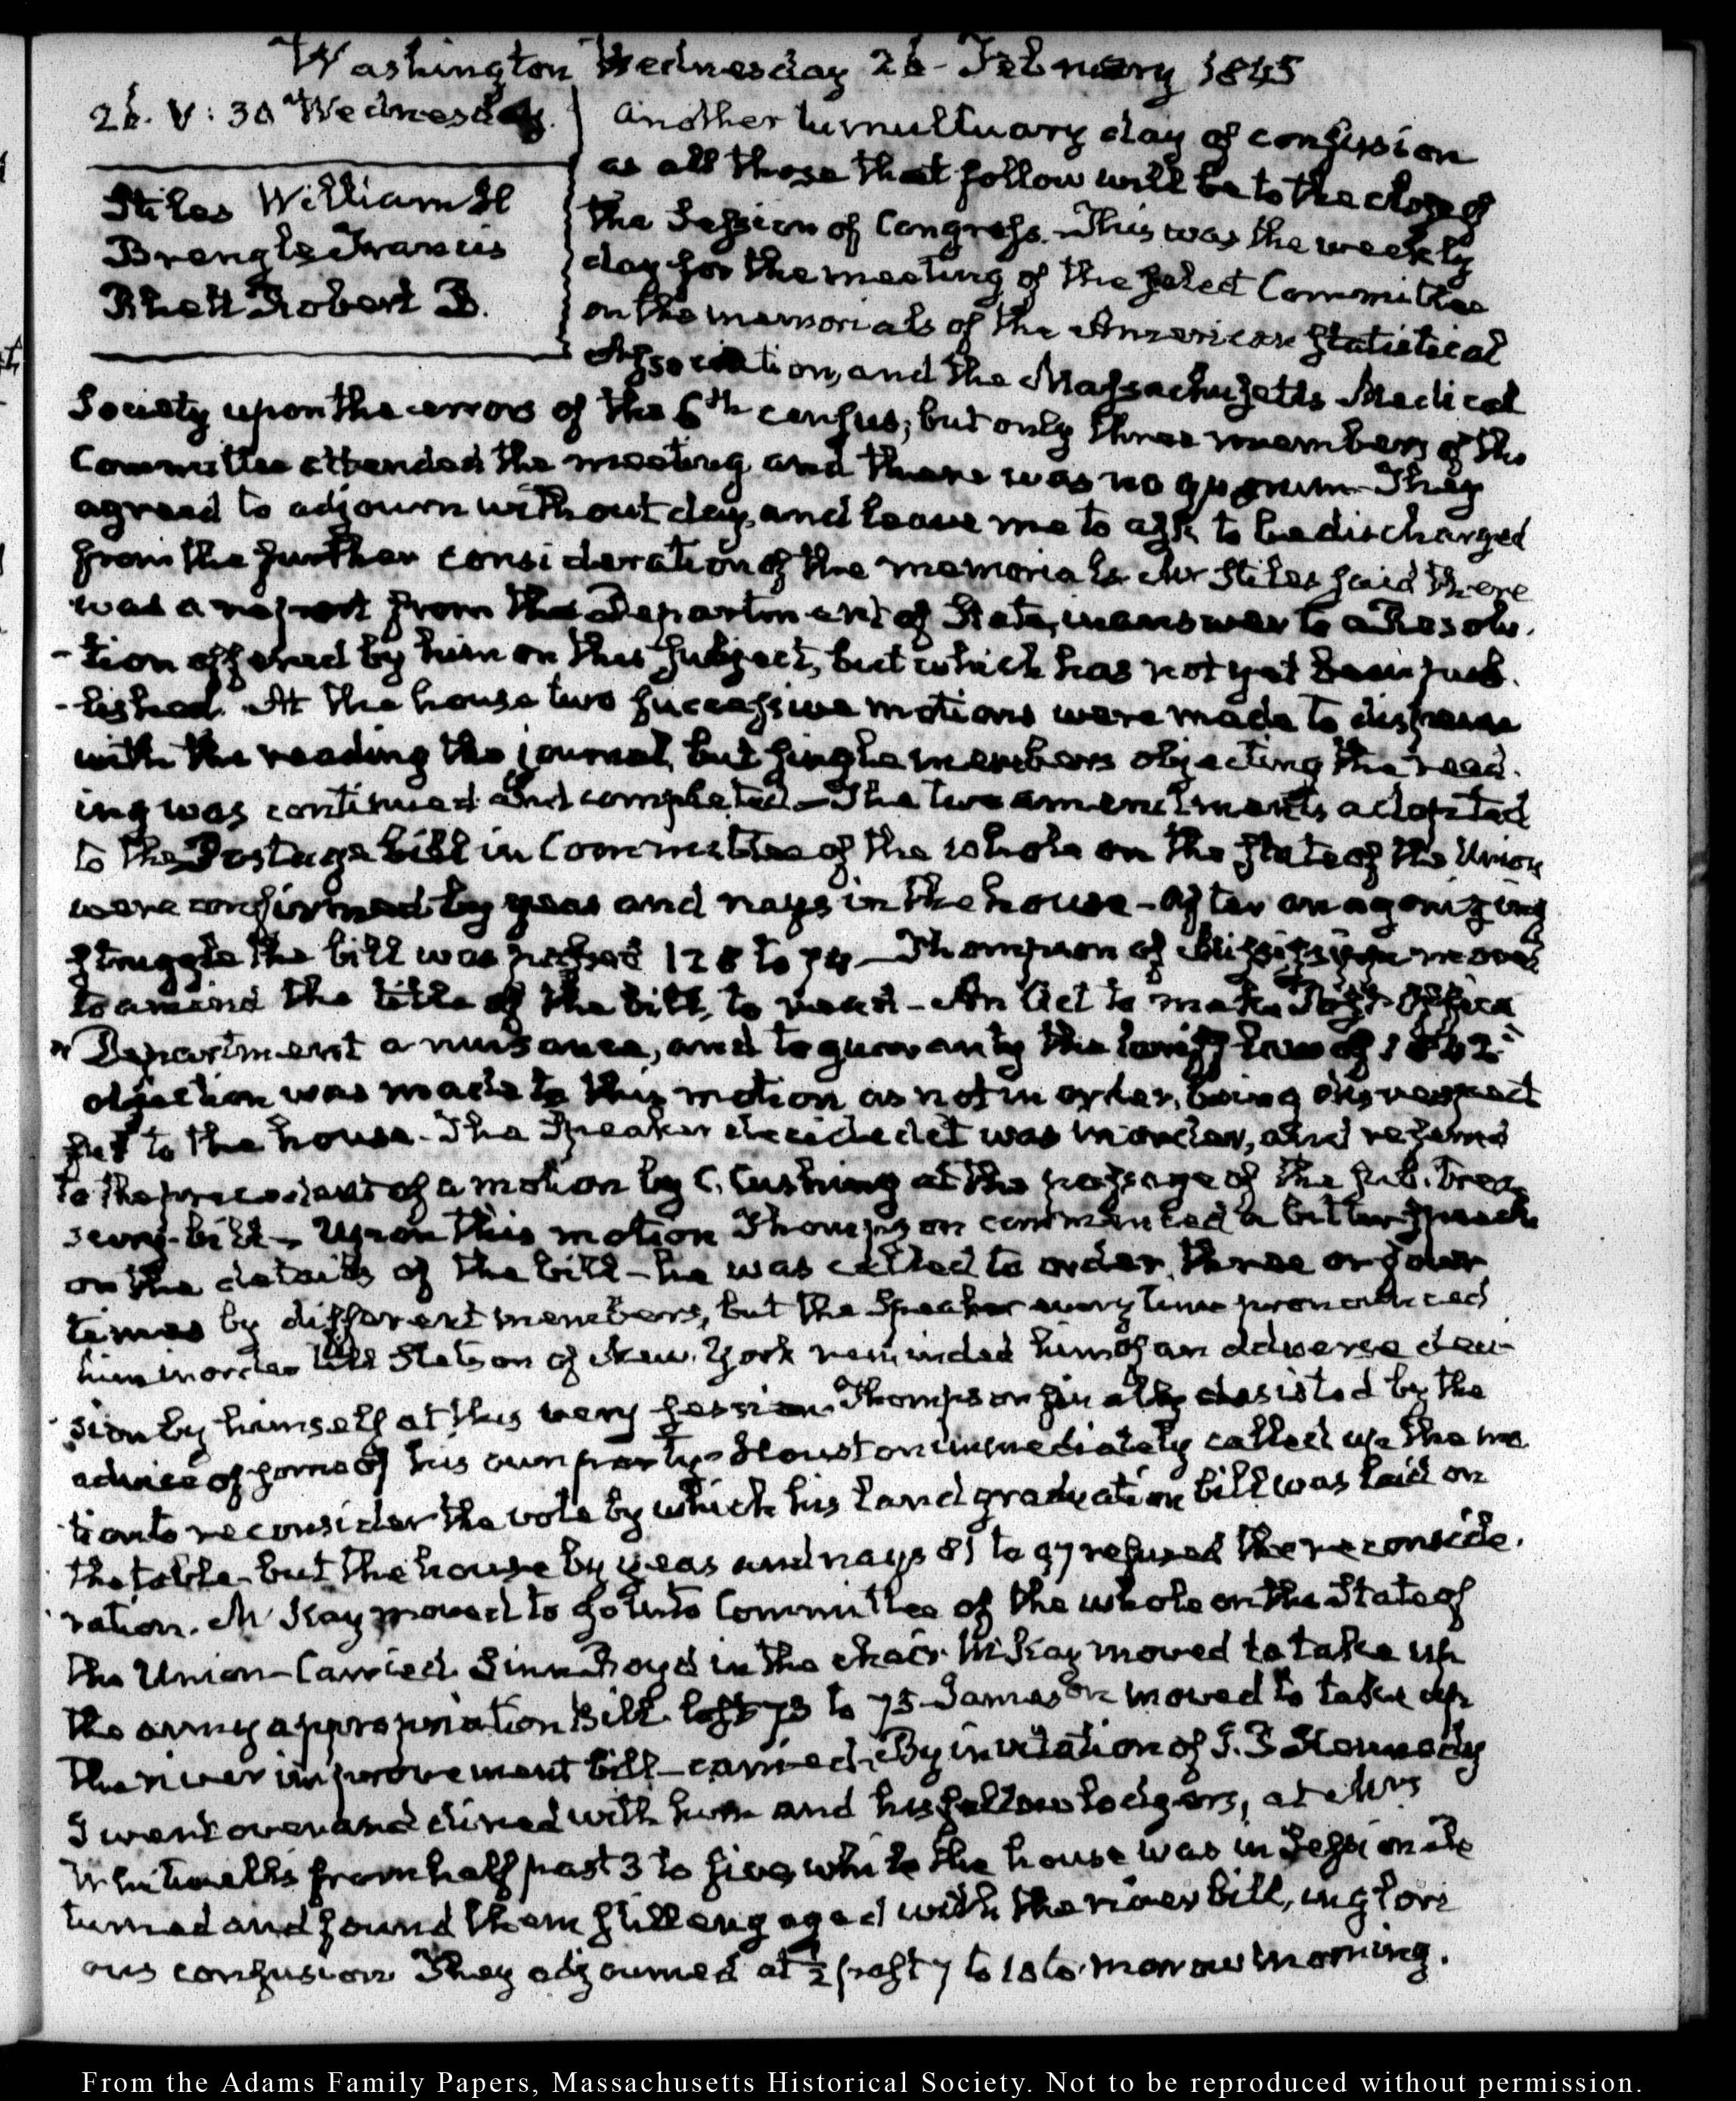 Washington Wednesday 26- February 1845
26. V: 30 Wednesday.
Stiles William H
Brengle Francis
Rhett Robert B.
Another tumultuary day of confusion
as all those that follow will be to the close of
the Session of Congress. This was the weekly
day for the meeting of the select Committee
on the memorials of the American Statistical
Association, and the Massachusetts Medical
Society upon the errors of the 6th census; but only three members of the
Committee attended the meeting and there was no quorum. They
agreed to adjourn without day, and leave me to ask to be discharged
from the further consideration of the memorials. Mr Stiles said there
was a report from the Department of State, in answer to a Resolu-
-tion offered by him on this subject, but which has not yet been pub-
-lished. At the house two successive motions were made to dispense
with the reading the journal, but single members objecting the read-
ing was continued and completed. The two amendments adopted
to the Postage bill in Committee of the whole on the state of the Union
were confirmed by yeas and nays in the house- after an agonizing
struggle the bill was passed 128 to 74- Thompson of Mississippi moved
to amend the title of the bill, to read- An Act to make Post Office
"Department a nuisance, and to guaranty the tariff law of 1842"
objection was made to this motion as not in order, being disrespect
ful to the house. The Speaker decided it was in order, and referred
to the precedent of a motion by C. Cushing at the passage of the sub. Trea-
sury- bill- Upon this motion Thompson commented a bitter speech
on the details of the bill- he was called to order three or four
times by different members, but the Speaker every time pronounced
him in order till Stetson of New-York reminded him of an adverse deci-
sion by himself at this very session. Thompson finally desisted by the
advice of some of his own party- Houston immediately called up the mo-
tion to reconsider the vote by which his land graduation bill was laid on
the table- but the house by yeas and nays 81 to 97 refused the reconside-
ration. McKay moved to go into Committee of the whole on the State of
the Union- Carried. Linn Boyd in the chair. McKay moved to take up
the army appropriation Bill. lost 73 to 75- Jameson moved to take up
the river improvement bill- carried. By invitation of J. P Kennedy
I went over and dined with him and his fellow lodgers, at Mrs
Whitwell's from half past 3 to five, while the house was in session. Re
turned and found them still engaged with the river bill, in glori
ous confusion They adjourned at ½ past 7 to 10 to-morrow morning.
From the Adams Family Papers, Massachusetts Historical Society. Not to be reproduced without permission.